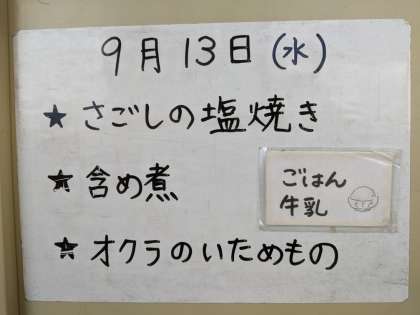 9月13日(水)
★ さごしの塩焼き
★ 含め煮
ごはん
牛乳
★ オクラのいためもの